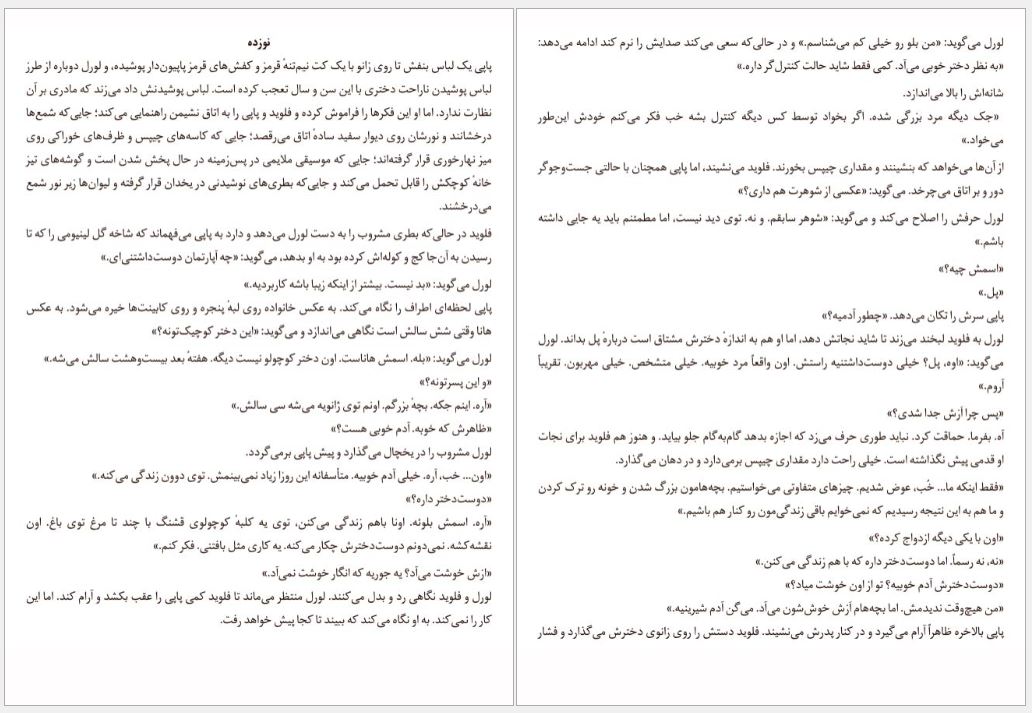 نوزده
پاپی یک لباس بنفش تا روی زانو با یک کت نیم‌تنهٔ قرمز و کفش‌های قرمز پاپیون‌دار پوشیده، و لورل دوباره از طرز
لباس پوشیدن ناراحت دختری با این سن و سال تعجب کرده است. لباس پوشیدنش داد می‌زند که مادری بر آن
نظارت ندارد. اما او این فکرها را فراموش کرده و فلوید و پاپی را به اتاق نشیمن راهنمایی می‌کند؛ جایی‌که شمع‌ها
درخشانند و نورشان روی دیوار سفید سادهٔ اتاق می‌رقصد؛ جایی که کاسه‌های چیپس و ظرف‌های خوراکی روی
میز نهارخوری قرار گرفته‌اند؛ جایی که موسیقی ملایمی در پس‌زمینه در حال پخش شدن است و گوشه‌های تیز
خانهٔ کوچکش را قابل تحمل می‌کند و جایی‌که بطری‌های نوشیدنی در یخدان قرار گرفته و لیوان‌ها زیر نور شمع
می‌درخشند.
فلوید در حالی‌که بطری مشروب را به دست لورل می‌دهد و دارد به پاپی می‌فهماند که شاخه گل لینیومی را که تا
رسیدن به آن‌جا کج و کوله‌اش کرده بود به او بدهد، می‌گوید: «چه آپارتمان دوست‌داشتنی‌ای.»
لورل می‌گوید: «بد نیست. بیشتر از اینکه زیبا باشه کاربردیه.»
پاپی لحظه‌ای اطراف را نگاه می‌کند. به عکس خانواده روی لبهٔ پنجره و روی کابینت‌ها خیره می‌شود. به عکس
هانا وقتی شش سالش است نگاهی می‌اندازد و می‌گوید: «این دختر کوچیک‌تونه؟»
لورل می‌گوید: «بله. اسمش هاناست. اون دختر کوچولو نیست دیگه. هفتهٔ بعد بیست‌وهشت سالش می‌شه.»
«و این پسرتونه؟»
«آره. اینم جکه. بچهٔ بزرگم. اونم توی ژانویه می‌شه سی سالش.»
«ظاهرش که خوبه. آدم خوبی هست؟»
لورل مشروب را در یخچال می‌گذارد و پیش پاپی برمی‌گردد.
«اون... خب، آره. خیلی آدم خوبیه. متأسفانه این روزا زیاد نمی‌بینمش. توی دوون زندگی می‌کنه.»
«دوست‌دختر داره؟»
«آره. اسمش بلوئه. اونا باهم زندگی می‌کنن، توی یه کلبهٔ کوچولوی قشنگ با چند تا مرغ توی باغ. اون
نقشه‌کشه. نمی‌دونم دوست‌دخترش چکار می‌کنه. یه کاری مثل بافتنی. فکر کنم.»
«ازش خوشت می‌آد؟ یه جوریه که انگار خوشت نمی‌آد.»
لورل و فلوید نگاهی رد و بدل می‌کنند. لورل منتظر می‌ماند تا فلوید کمی پاپی را عقب بکشد و آرام کند. اما این
کار را نمی‌کند. به او نگاه می‌کند که ببیند تا کجا پیش خواهد رفت.
لورل می‌گوید: «من بلو رو خیلی کم می‌شناسم.» و در حالی‌که سعی می‌کند صدایش را نرم کند ادامه می‌دهد:
«به نظر دختر خوبی می‌آد. کمی فقط شاید حالت کنترل‌گر داره.»
شانه‌اش را بالا می‌اندازد.
«جک دیگه مرد بزرگی شده. اگر بخواد توسط کس دیگه کنترل بشه خب فکر می‌کنم خودش این‌طور
می‌خواد.»
از آن‌ها می‌خواهد که بنشینند و مقداری چیپس بخورند. فلوید می‌نشیند، اما پاپی همچنان با حالتی جست‌وجوگر
دور و بر اتاق می‌چرخد. می‌گوید: «عکسی از شوهرت هم داری؟»
لورل حرفش را اصلاح می‌کند و می‌گوید: «شوهر سابقم. و نه. توی دید نیست، اما مطمئنم باید یه جایی داشته
باشم.»
«اسمش چیه؟»
«پل.»
پاپی سرش را تکان می‌دهد. «چطور آدمیه؟»
لورل به فلوید لبخند می‌زند تا شاید نجاتش دهد، اما او هم به اندازهٔ دخترش مشتاق است دربارهٔ پل بداند. لورل
می‌گوید: «اوه، پل؟ خیلی دوست‌داشتنیه راستش. اون واقعاً مرد خوبیه. خیلی متشخص. خیلی مهربون. تقریباً
آروم.»
«پس چرا ازش جدا شدی؟»
آه. بفرما. حماقت کرد. نباید طوری حرف می‌زد که اجازه بدهد گام‌به‌گام جلو بیاید. و هنوز هم فلوید برای نجات
او قدمی پیش نگذاشته است. خیلی راحت دارد مقداری چیپس برمی‌دارد و در دهان می‌گذارد.
«فقط اینکه ما... خُب، عوض شدیم. چیزهای متفاوتی می‌خواستیم. بچه‌هامون بزرگ شدن و خونه رو ترک کردن
و ما هم به این نتیجه رسیدیم که نمی‌خوایم باقی زندگی‌مون رو کنار هم باشیم.»
«اون با یکی دیگه ازدواج کرده؟»
«نه، نه رسماً. اما دوست‌دختر داره که با هم زندگی می‌کنن.»
«دوست‌دخترش آدم خوبیه؟ تو از اون خوشت میاد؟»
«من هیچ‌وقت ندیدمش. اما بچه‌هام ازش خوش‌شون می‌آد. می‌گن آدم شیرینیه.»
پاپی بالاخره ظاهراً آرام می‌گیرد و در کنار پدرش می‌نشیند. فلوید دستش را روی زانوی دخترش می‌گذارد و فشار